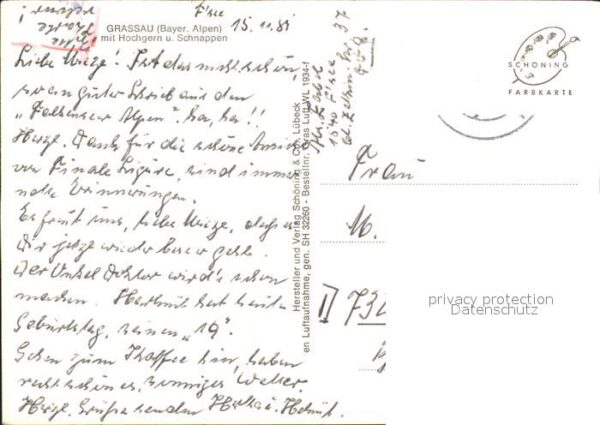 F'see 15.11.81
GRASSAU (Bayer. Alpen)
mit Hochgern u. Schnappen
Bitte
Karte
Liebe Mieze! Ist das nicht schön
so ein guter Schrieb aus den
"Falkenseer Alpen". ha, ha!!
Herzl. Dank für die schöne Ansicht
von Finale Ligure, sind immer
Erinnerungen.
Es freut uns, liebe Mieze, daß es
Dir jetzt wieder besser geht.
Der Onkel Doktor wird's schon
machen. Hartmut hat heute
Geburtstag, seinen "19".
Gehen zum Kaffee hin, haben
recht schönes, sonniges Wetter.
Herzl. Grüße senden Herta u. Helmut.
Hersteller und Verlag Schöning & Co., Lübeck
en Luftaufnahme, gen. SH 32260 - Bestellnr. Gras Luft WL 1934-f
1540 F'see
37
SCHÖNING
FARBKARTE
Frau
M.
73
privacy protection
Datenschutz